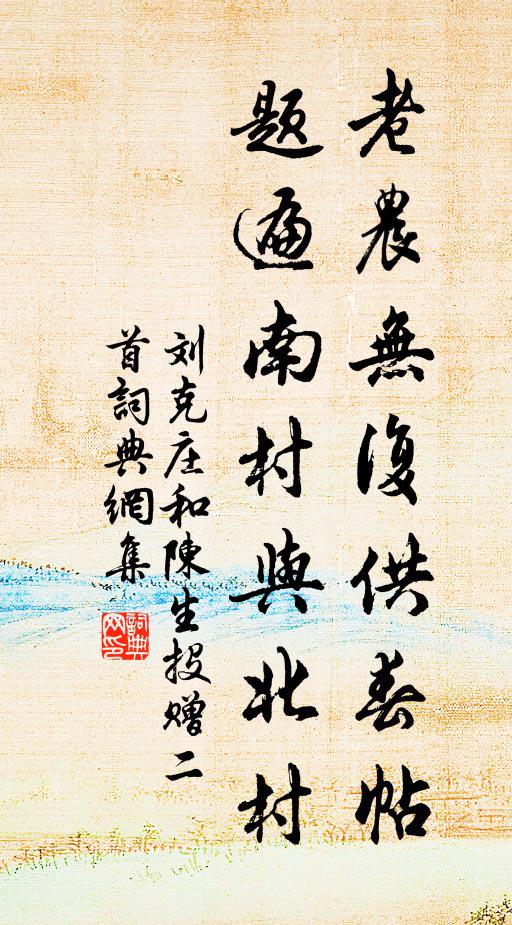 老農無復供春帖
題遍南村與北村
刘克庄和陳生投贈二
首詞典網集
詞典
网印